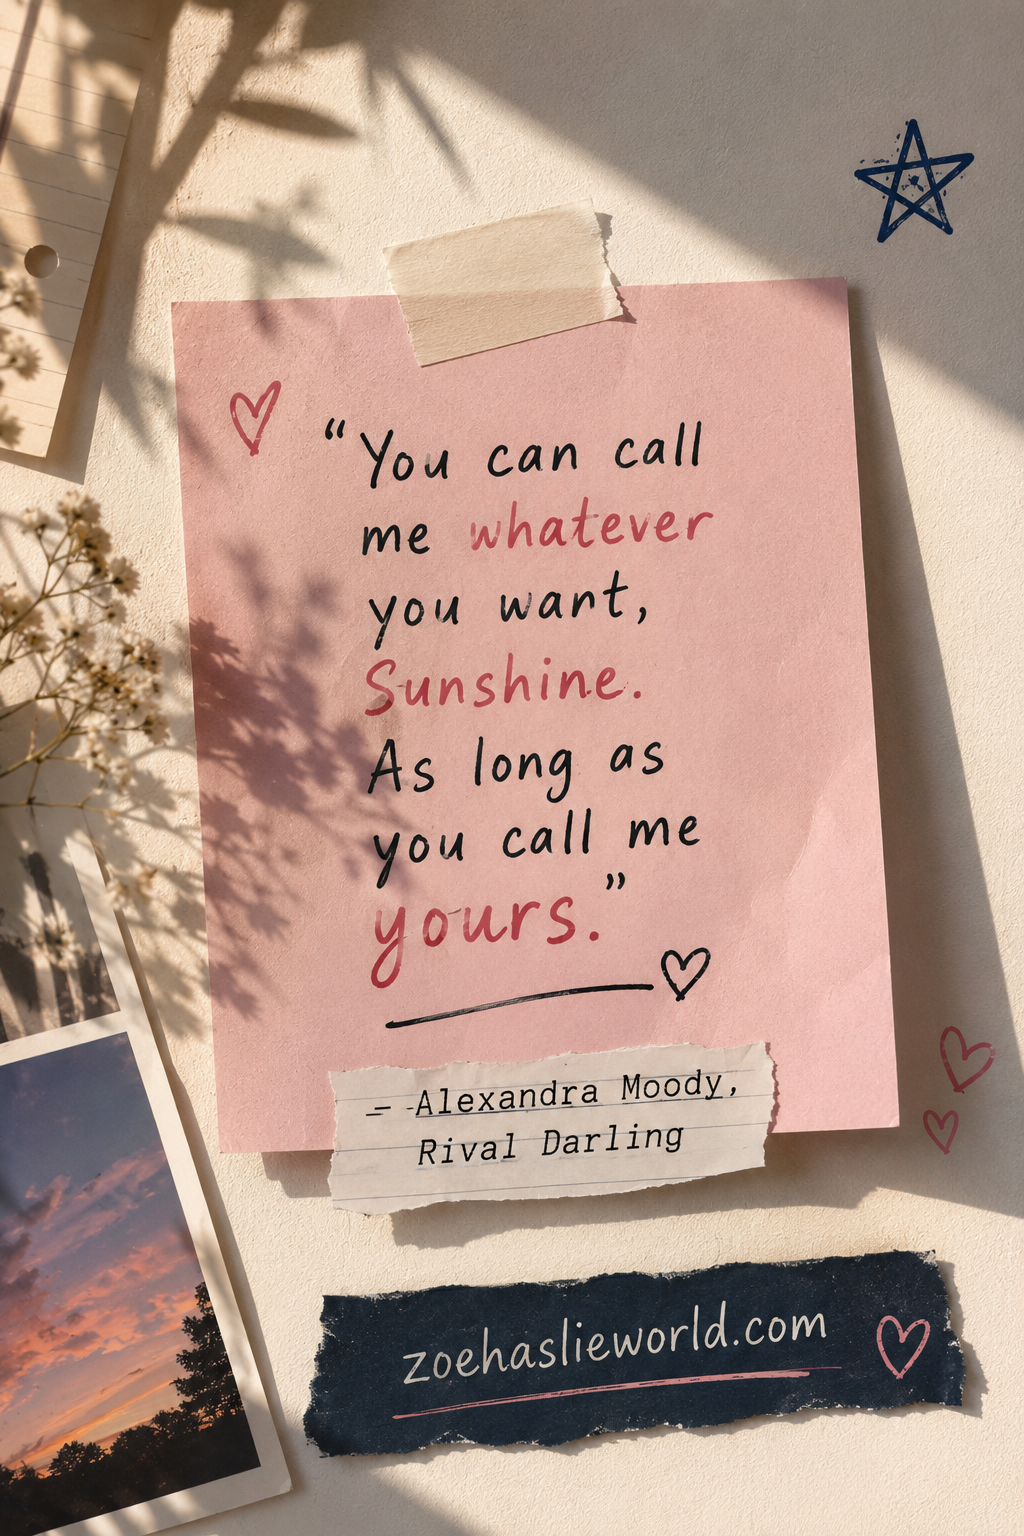 “You can call
me whatever
you want,
Sunshine.
As long as
you call me
yours.”
– Alexandra Moody,
Rival Darling
zoehaslieworld.com